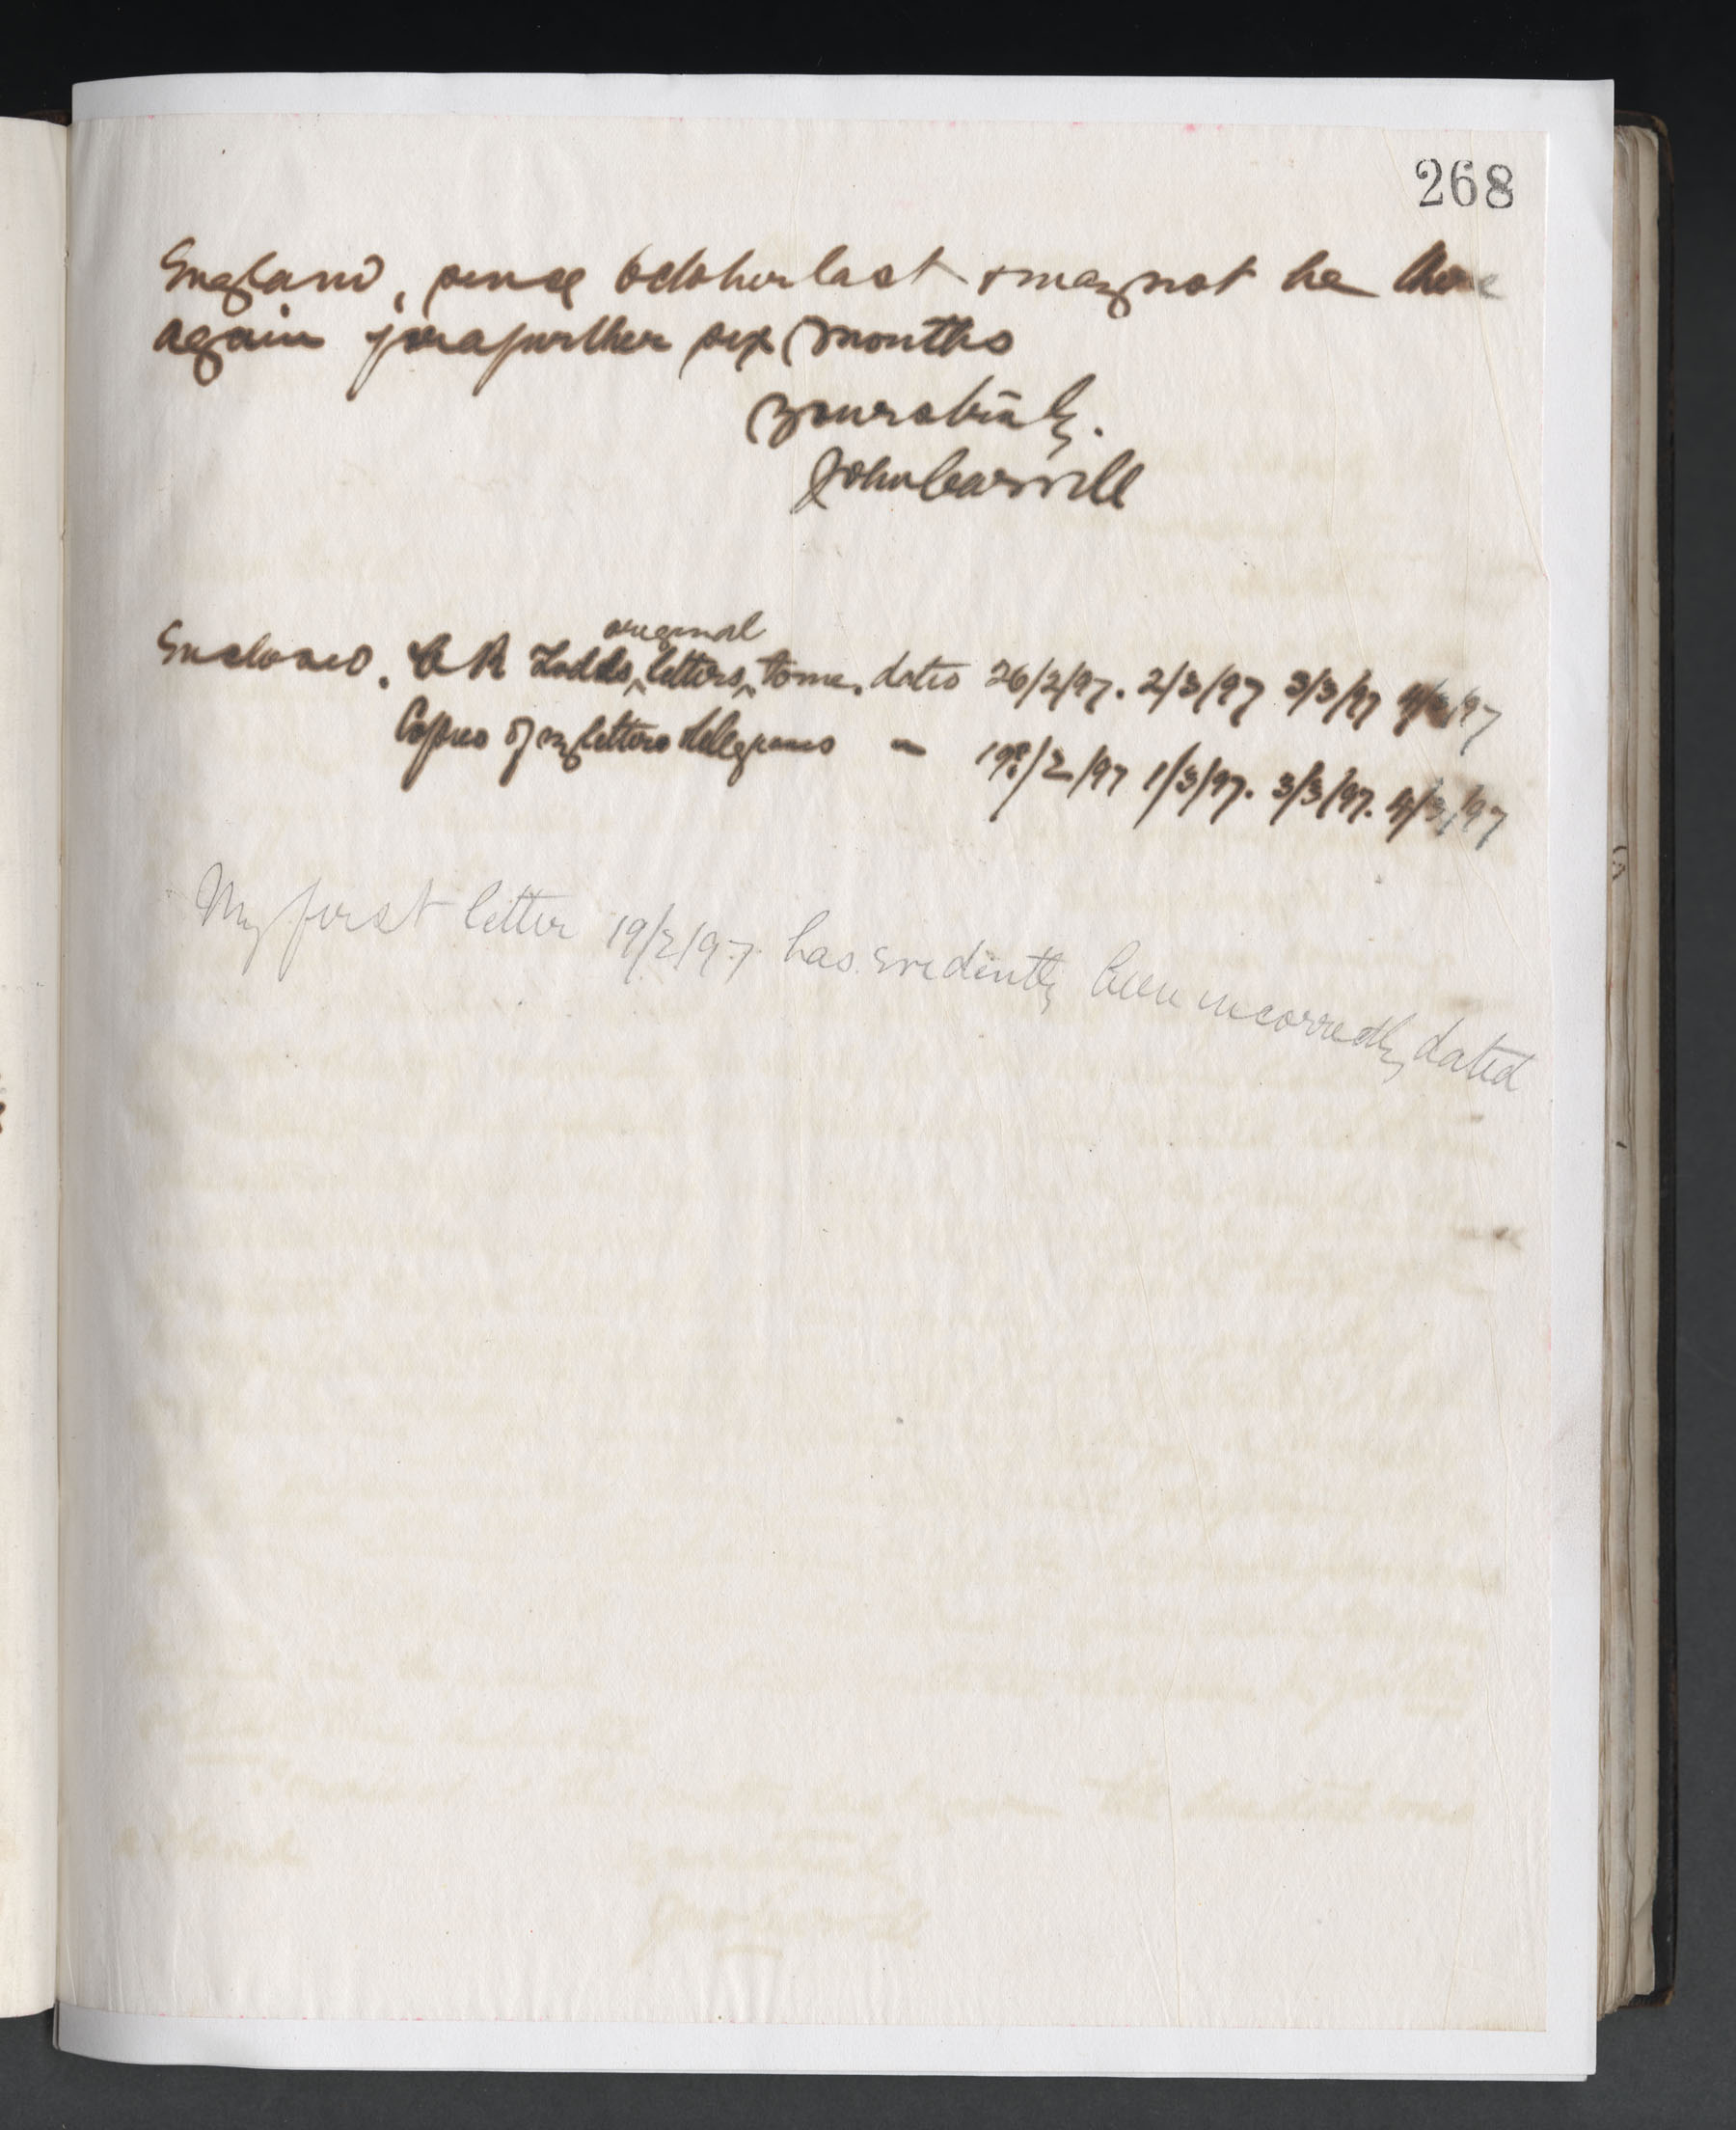 268
England, since October last & may not be there
again for a further six months
Yours truly.
John Carvill
original
Enclosed. C R Todds letters to me. dates 26/2/97. 2/3/97 3/3/97 4/3/97
Copies of my letters telegrams - 19?/2/97 1/3/97. 3/3/97. 4/3/97
My first letter 19/2/97. has evidently been incorrectly dated